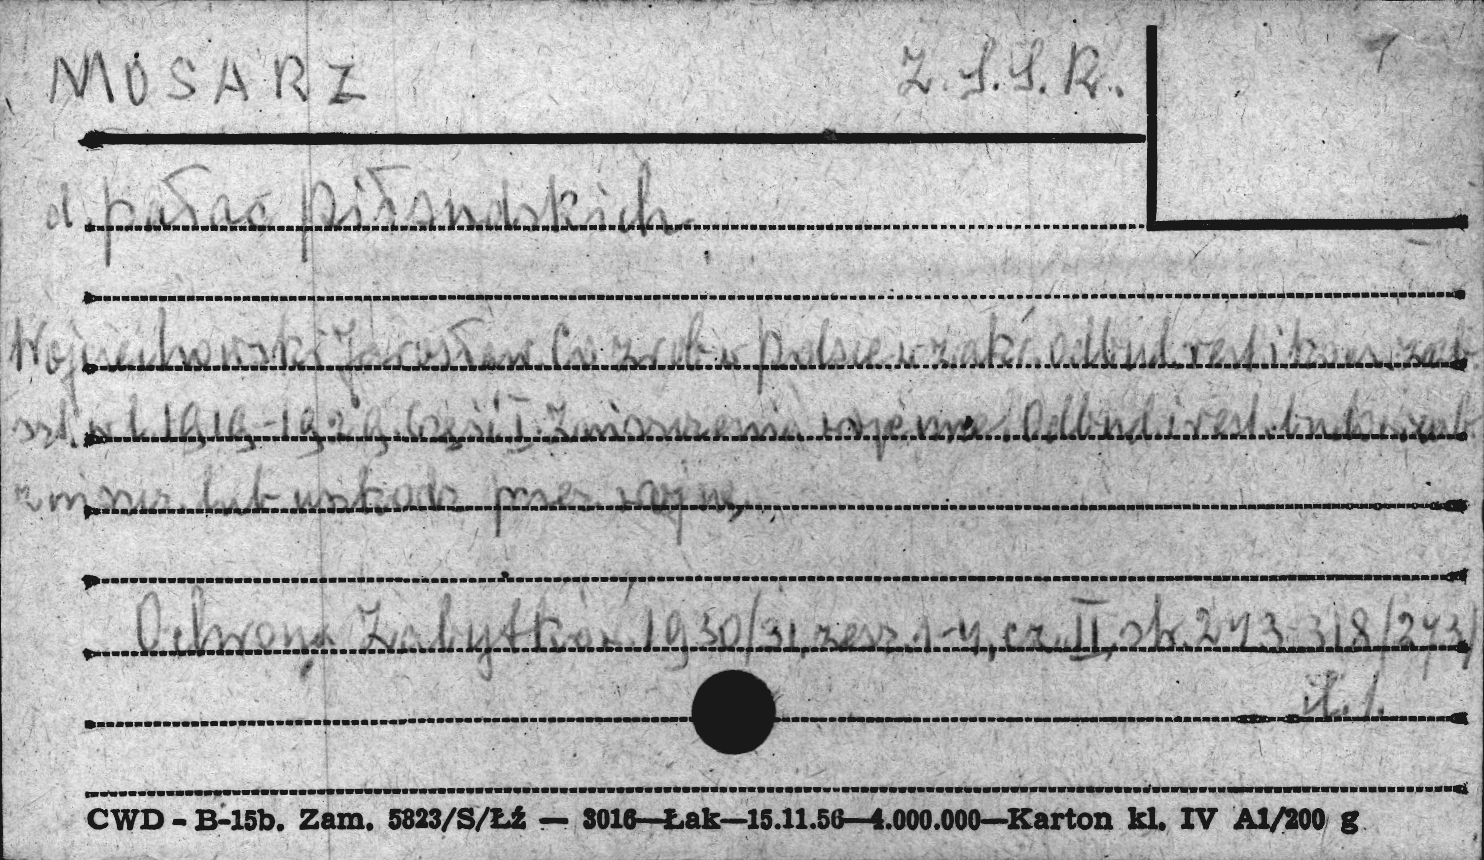 MOSARZ Z.S.S.R. 1
d. pałac piłsudskich
Wojciechowski Jarosław Co zrob. w Polsce w zakr. odbud. rest. i kons. zab.
szt. w l. 1919-1929. Część I. Zniszczenia wojenne. Odbud. i rest. budowl.
zniszcz. lub uszkodz. przez wojnę,
Ochrona Zabytków 1930/31, zesz. 1-4, cz. II, str. 243-318/273/
il. 1.
CWD - B-15b. Zam. 5823/S/Łź — 3016—Łak—15.11.56—4.000.000—Karton kl. IV A1/200 g